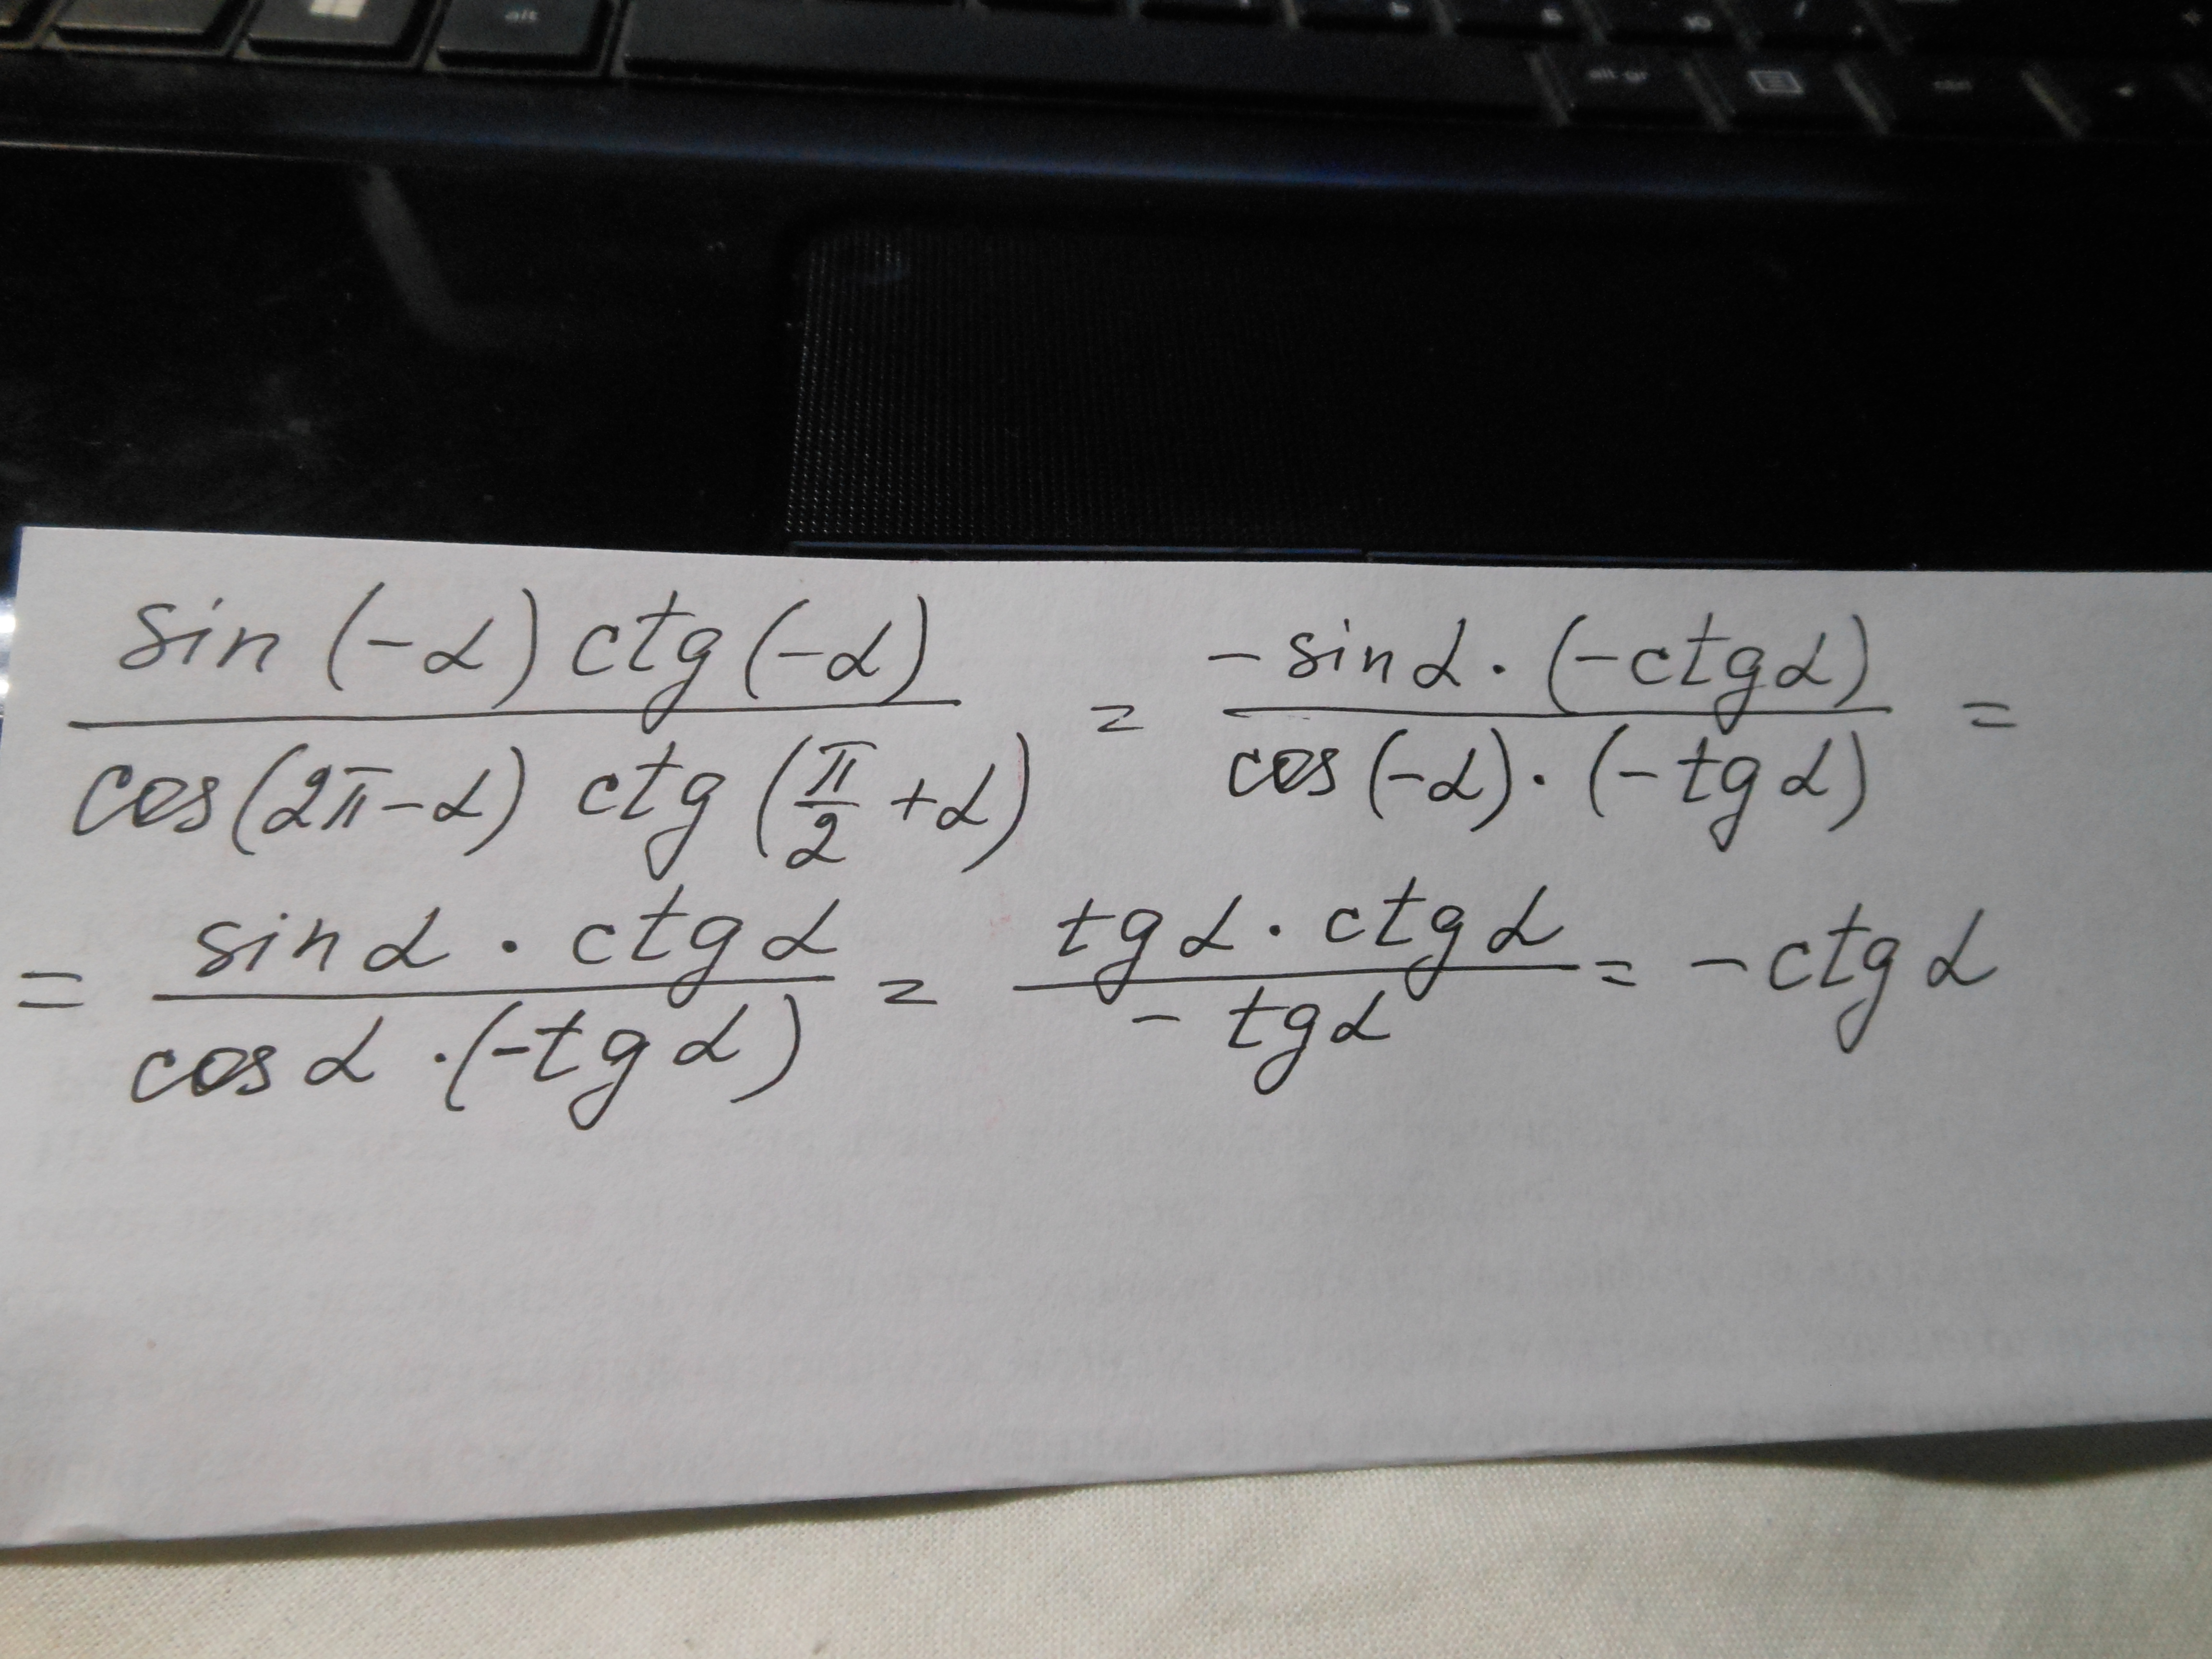 alt
alt gr
ctrl
sin(-α) ctg(-α) / cos(2π-α) ctg(π/2 +α) = -sinα · (-ctgα) / cos(-α) · (-tgα) =
= sinα · ctgα / cosα · (-tgα) = tgα · ctgα / -tgα = -ctgα